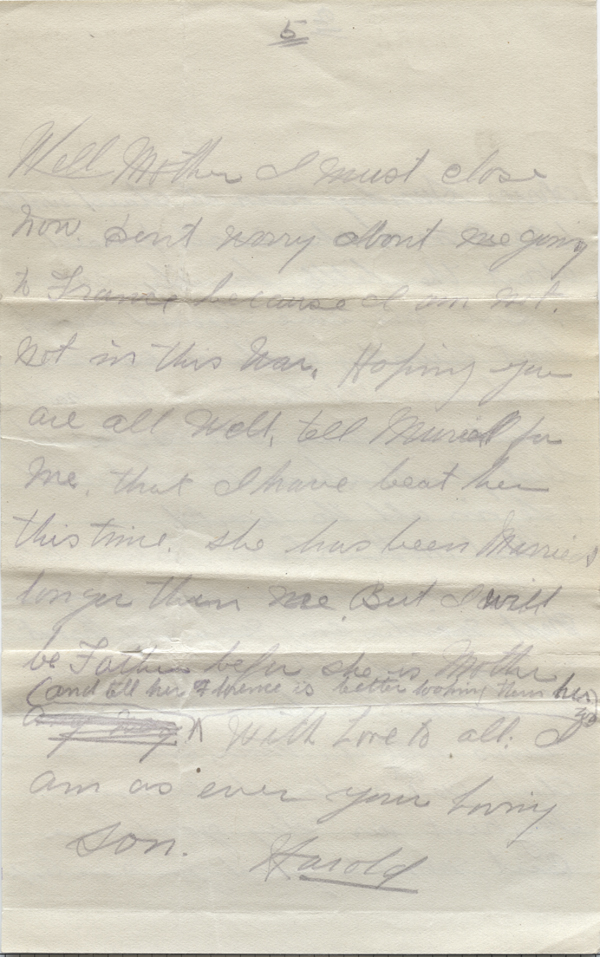 5
Well Mother I must close
now. dont worry about me going
to France because I am not.
not in this War. Hoping you
are all well, tell Muriel for
me, that I have beat her
this time. she has been Married
longer than me But I will
be Father befor she is Mother
(and tell her Florence is better looking than her
With Love to all. I
am as ever your loving
son.
Harold